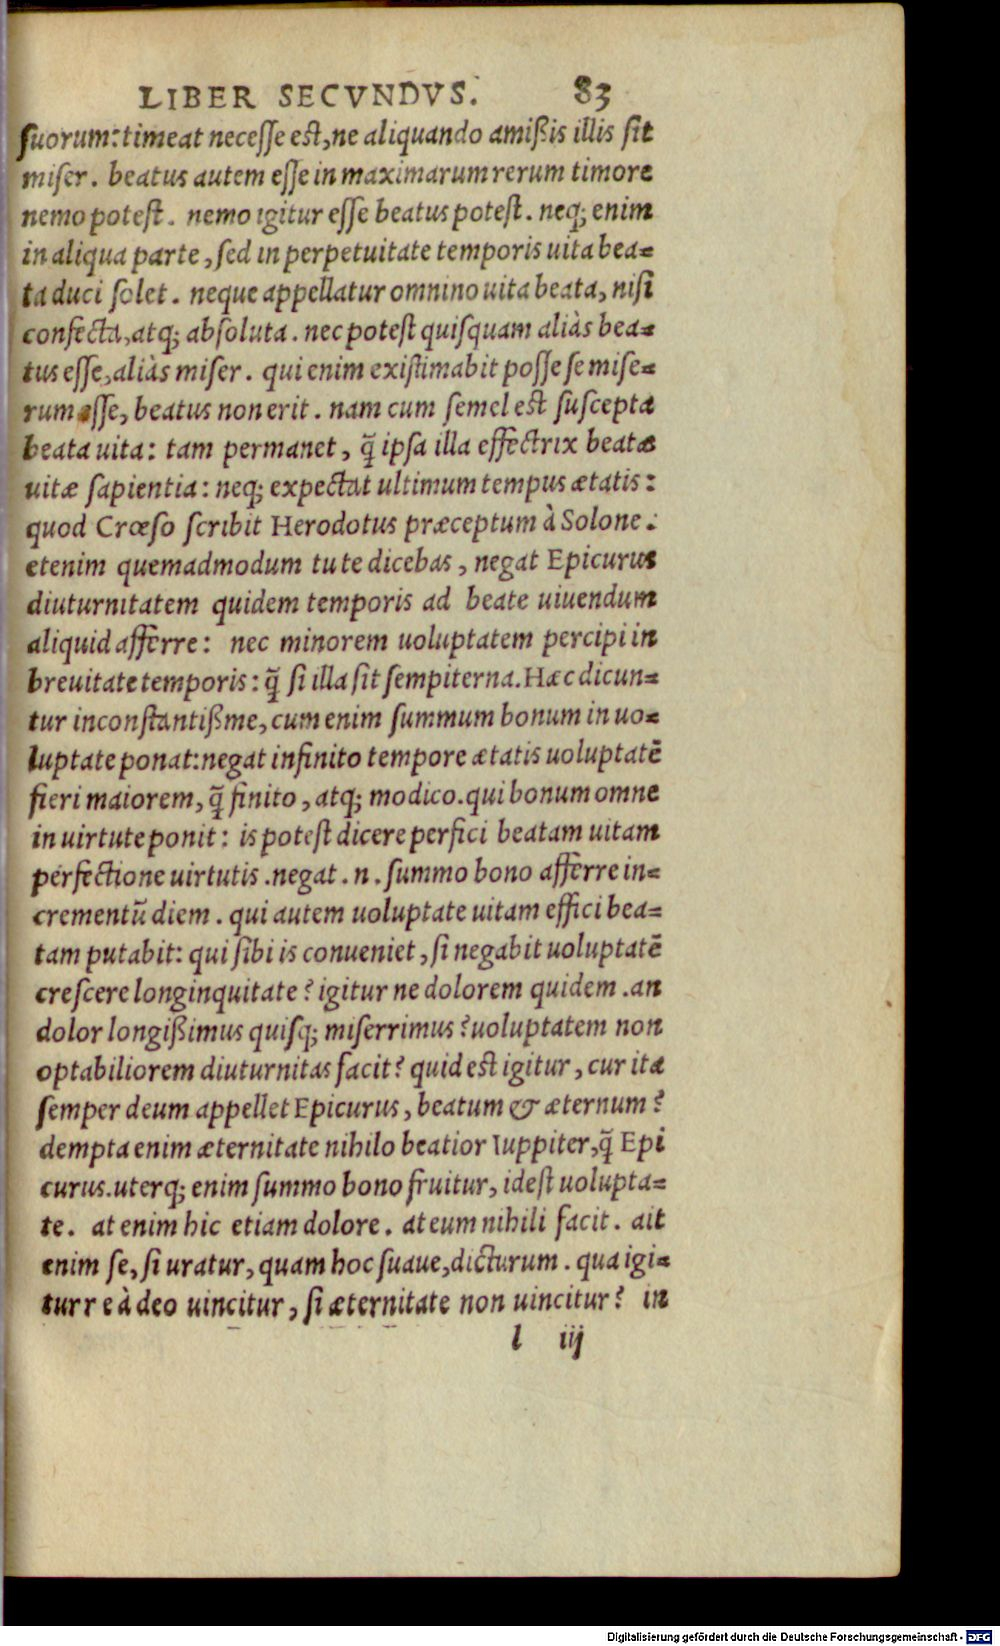 LIBER SECVNDVS. 83
suorum: timeat necesse est, ne aliquando amißis illis sit
miser. beatus autem esse in maximarum rerum timore
nemo potest. nemo igitur esse beatus potest. neq; enim
in aliqua parte, sed in perpetuitate temporis uita bea=
ta duci solet. neque appellatur omnino uita beata, nisi
confecta, atq; absoluta. nec potest quisquam aliàs bea=
tus esse, aliàs miser. qui enim existimabit posse se mise=
rum esse, beatus non erit. nam cum semel est suscepta
beata uita: tam permanet, q̃ ipsa illa effectrix beatæ
uitæ sapientia: neq; expectat ultimum tempus ætatis:
quod Crœso scribit Herodotus præceptum à Solone.
etenim quemadmodum tu te dicebas, negat Epicurus
diuturnitatem quidem temporis ad beate uiuendum
aliquid afferre: nec minorem uoluptatem percipi in
breuitate temporis: q̃ si illa sit sempiterna. Hæc dicun=
tur inconstantißme, cum enim summum bonum in uo=
luptate ponat: negat infinito tempore ætatis uoluptatẽ
fieri maiorem, q̃ finito, atq; modico. qui bonum omne
in uirtute ponit: is potest dicere perfici beatam uitam
perfectione uirtutis. negat. n. summo bono afferre in=
crementũ diem. qui autem uoluptate uitam effici bea=
tam putabit: qui sibi is conueniet, si negabit uoluptatẽ
crescere longinquitate? igitur ne dolorem quidem. an
dolor longißimus quisq; miserrimus? uoluptatem non
optabiliorem diuturnitas facit? quid est igitur, cur ita
semper deum appellet Epicurus, beatum & æternum?
dempta enim æternitate nihilo beatior Iuppiter, q̃ Epi
curus. uterq; enim summo bono fruitur, idest uolupta=
te. at enim hic etiam dolore. at eum nihili facit. ait
enim se, si uratur, quam hoc suaue, dicturum. qua igi=
tur re à deo uincitur, si æternitate non uincitur? in
l iij
Digitalisierung gefördert durch die Deutsche Forschungsgemeinschaft - DFG